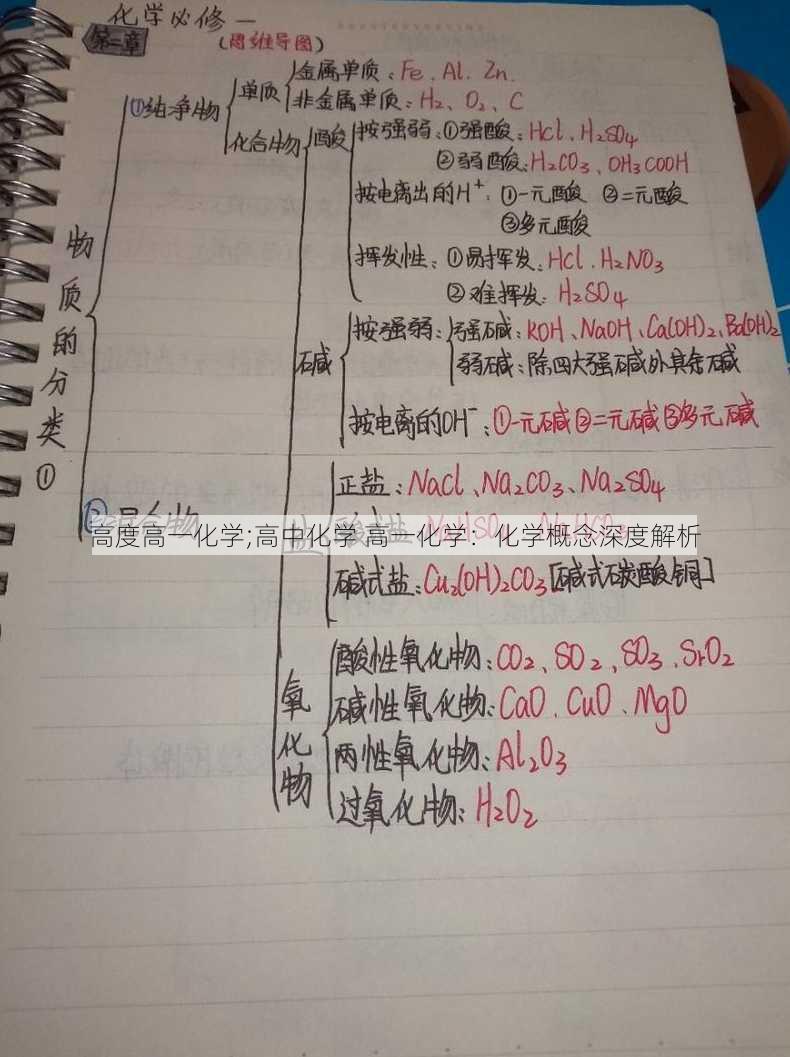 化学必修一
第二章
(思维导图)
物质的分类①
①纯净物
单质
金属单质：Fe、Al、Zn.
非金属单质：H₂、O₂、C
化合物
酸
按强弱：①强酸：HCl、H₂SO₄
②弱酸：H₂CO₃、OH₃COOH
按电离出的H⁺：①一元酸 ②二元酸
③多元酸
挥发性：①易挥发：HCl、H₂NO₃
②难挥发：H₂SO₄
碱
按强弱：强碱：KOH、NaOH、Ca(OH)₂、Ba(OH)₂
弱碱：除四大强碱外其余碱
按电离的OH⁻：①一元碱②二元碱③多元碱
盐
正盐：NaCl、Na₂CO₃、Na₂SO₄
②混合物
高度高一化学;高中化学 高一化学：化学概念深度解析
碱式盐：Cu₂(OH)₂CO₃[碱式碳酸铜]
氧化物
酸性氧化物：CO₂、SO₂、SO₃、SrO₂
碱性氧化物：CaO、CuO、MgO
两性氧化物：Al₂O₃
过氧化物：H₂O₂